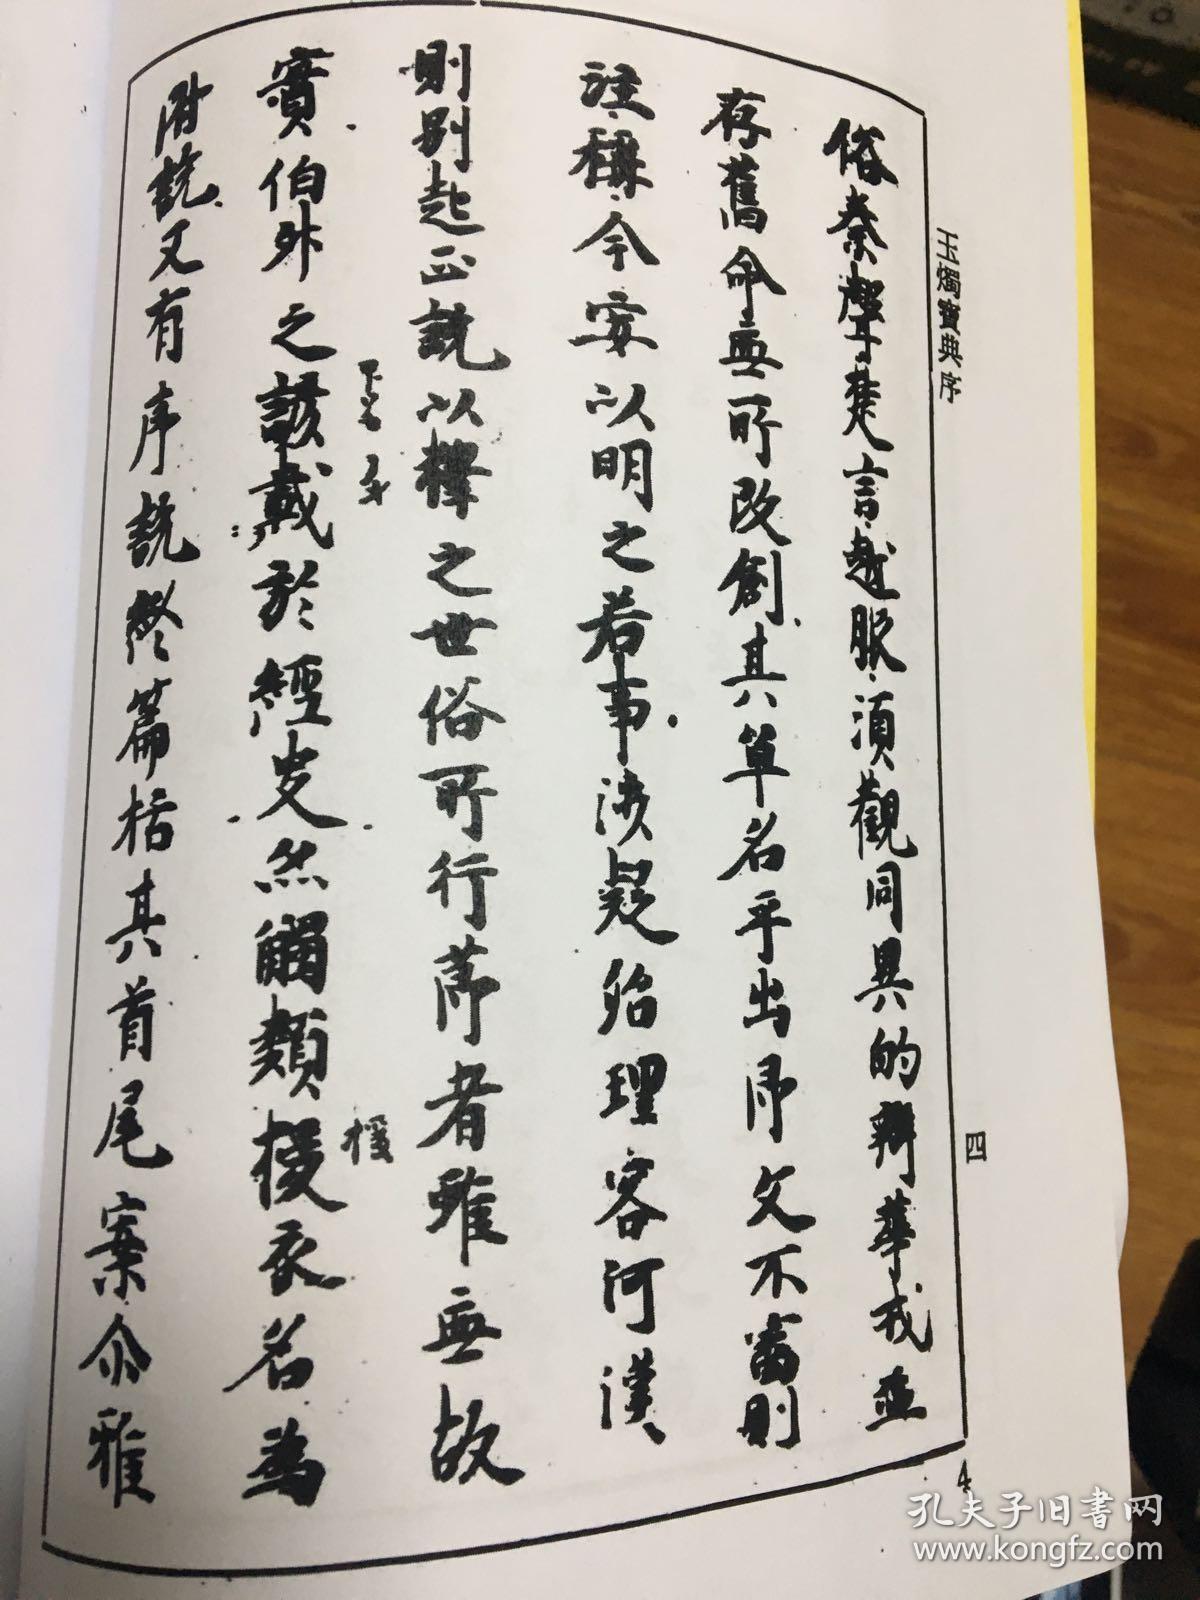 玉燭寶典序
四
俗秦聲楚言越服須觀同異的辨華戎並
存舊命無所改創其單名乎出所文不審則
注稱今案以明之若事涉疑殆理容河漢
則別起正說以釋之世俗所行節者雖無故
實伯外之諺載於經史然觸類援衣名為
援
附說又有序說終篇括其首尾案尒雅
4
孔夫子旧书网
www.kongfz.com